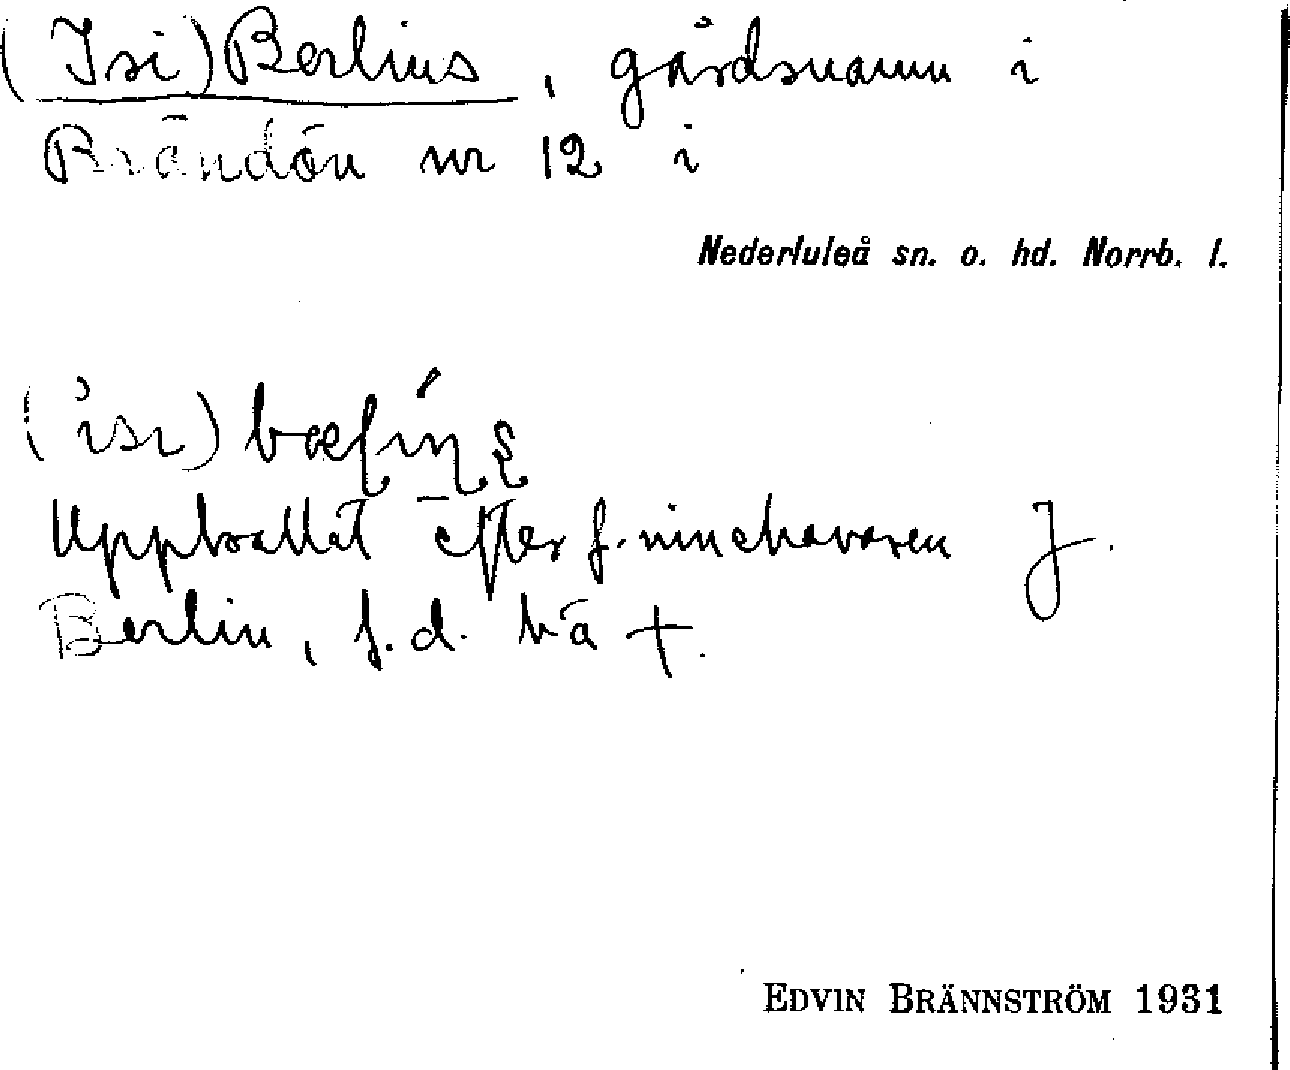 (Isi) Berlins, gårdsnamn i
Brändön nr 12 i
Nederluleå sn. o. hd. Norrb. l.
Uppkallat efter f. innehavaren J.
Berlin, f.d. kä †.
EDVIN BRÄNNSTRÖM 1931